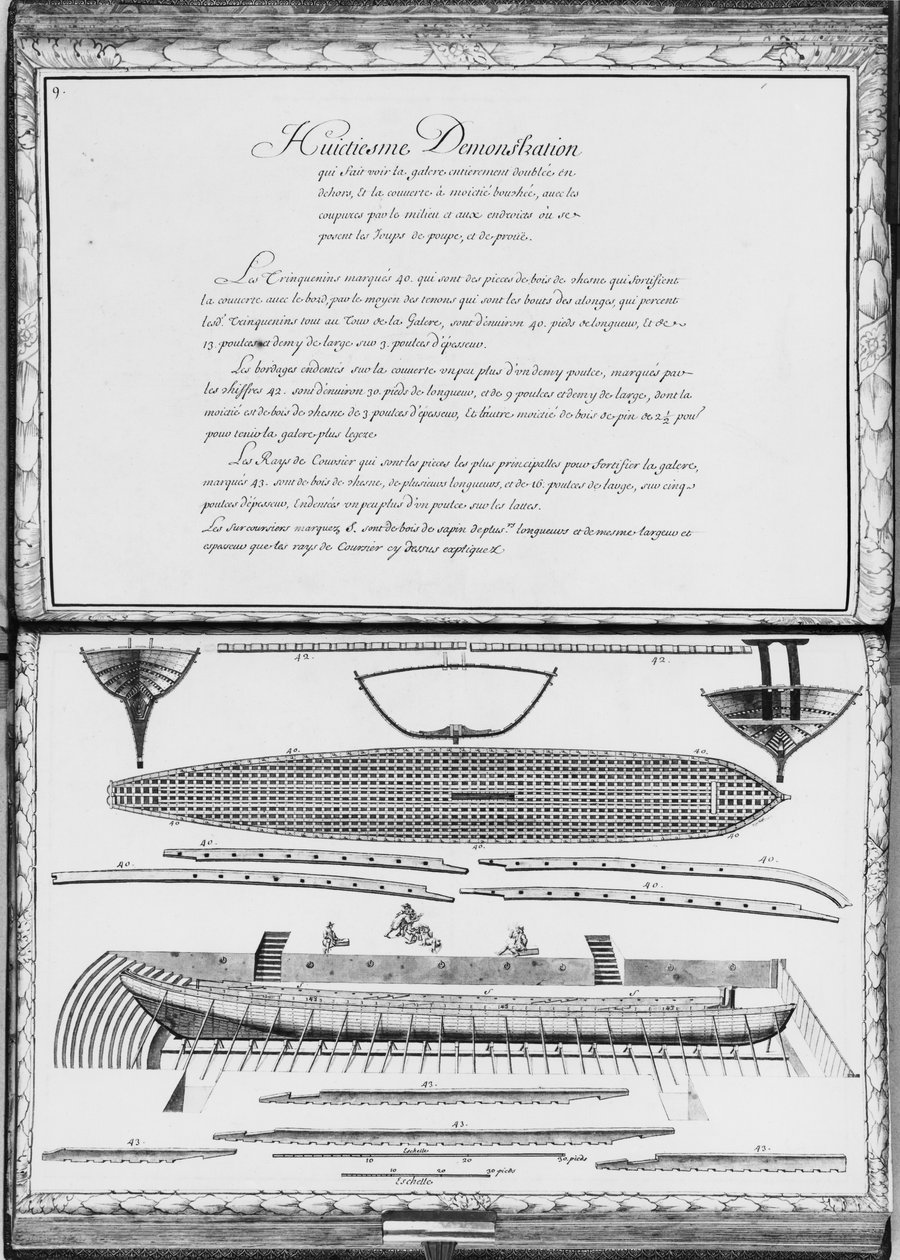 9.
Huictiesme Demonstration
qui fait voir la galere entierement doublée en
dehors, Et la couuerte à moictié bouchée, auec les
coupures par le milieu et aux endroicts où se
posent les Joups de poupe, et de proüe.
Les Trinquenins marqués 40. qui sont des pieces de bois de chesne qui fortifient
la couuerte auec le bord, par le moyen des tenons qui sont les bouts des alonges, qui percent
lesd. Trinquenins tout au Tour de la Galere, sont d'enuiron 40. pieds de longueur, Et de
13. poulces et demy de large sur 3. poulces d'épesseur.
Les bordages endentés sur la couuerte vn peu plus d'vn demy poulce, marqués par
les chiffres 42. sont d'enuiron 30. pieds de longueur, et de 9 poulces et demy de large, dont la
moictié est de bois de chesne de 3 poulces d'épesseur, Et l'autre moictié de bois de pin de 2 1/2 poul
pour tenir la galere plus legere
Les Rays de Coursier qui sont les pieces les plus principalles pour fortifier la galere,
marqués 43. sont de bois de chesne, de plusieurs longueurs, et de 16. poulces de large, sur cinq
poulces d'épesseur, Endentées vn peu plus d'vn poulce sur les lattes.
Les surcoursiers marquez S. sont de bois de sapin de plus.rs longueurs et de mesme largeur et
espesseur que les rays de Coursier cy dessus expliquez
42.
42.
40.
40.
40
40.
40
40.
40.
40.
40.
S
S
S
43
43
43
43.
43.
43.
43.
Eschelle
10
20
30 pieds
10
20
30 pieds
Eschelle